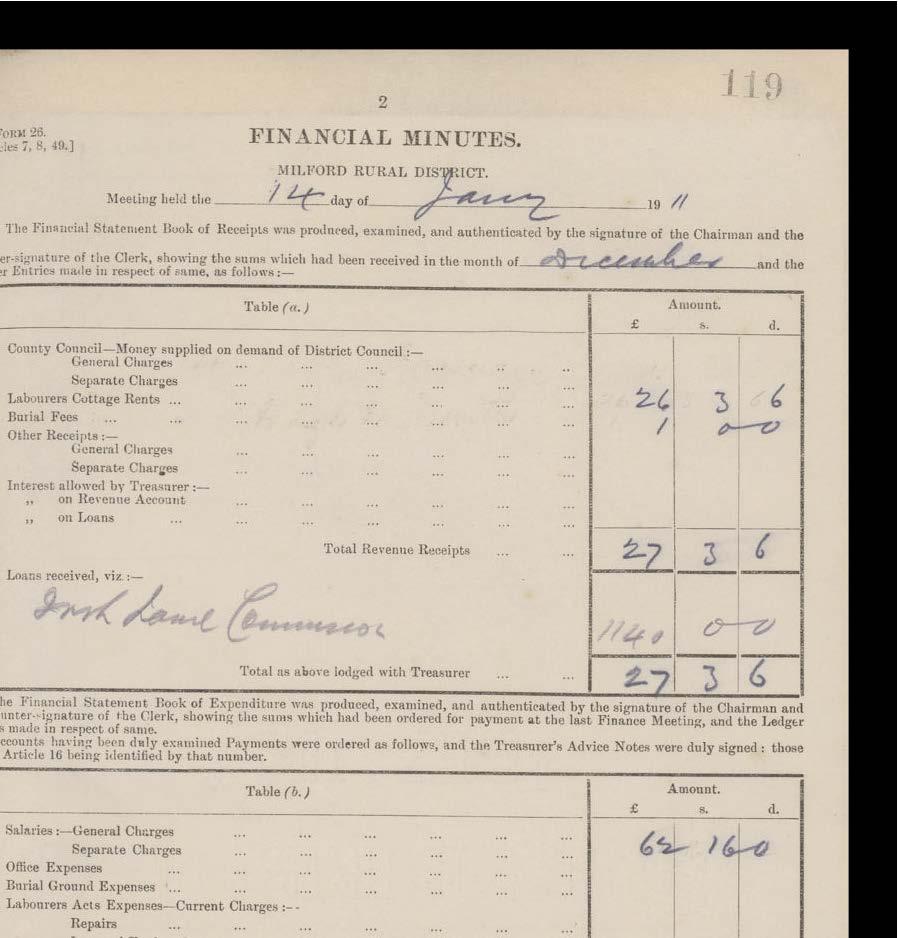 119
2
FORM 26.
cles 7, 8, 49.]
FINANCIAL MINUTES.
MILFORD RURAL DISTRICT.
Meeting held the 14 day of Jany 1911
The Financial Statement Book of Receipts was produced, examined, and authenticated by the signature of the Chairman and the
er-signature of the Clerk, showing the sums which had been received in the month of December and the
er Entries made in respect of same, as follows :—
Table (a.) Amount.
£ s. d.
County Council—Money supplied on demand of District Council :—
General Charges ... ... ... ... ... ...
Separate Charges ... ... ... ... ... ...
Labourers Cottage Rents ... ... ... ... ... ... ... 26 3 6
Burial Fees ... ... ... ... ... ... ... ... 1 0 0
Other Receipts :—
General Charges ... ... ... ... ... ...
Separate Charges ... ... ... ... ... ...
Interest allowed by Treasurer :—
„ on Revenue Account ... ... ... ... ... ...
„ on Loans ... ... ... ... ... ... ...
Total Revenue Receipts ... ... 27 3 6
Loans received, viz. :—
Irish Land Commission 1140 0 0
Total as above lodged with Treasurer ... ... 27 3 6
he Financial Statement Book of Expenditure was produced, examined, and authenticated by the signature of the Chairman and
unter-signature of the Clerk, showing the sums which had been ordered for payment at the last Finance Meeting, and the Ledger
s made in respect of same.
ccounts having been duly examined Payments were ordered as follows, and the Treasurer's Advice Notes were duly signed : those
Article 16 being identified by that number.
Table (b.) Amount.
£ s. d.
Salaries :—General Charges ... ... ... ... ... ...
Separate Charges ... ... ... ... ... ... 62 16 0
Office Expenses ... ... ... ... ... ... ...
Burial Ground Expenses ... ... ... ... ... ... ...
Labourers Acts Expenses—Current Charges :--
Repairs ... ... ... ... ... ... ...